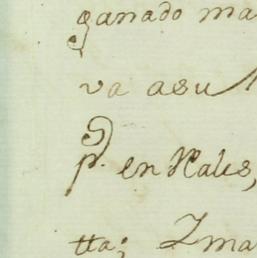 ganado ma
va asu
p. en Rales,
tta; Zma